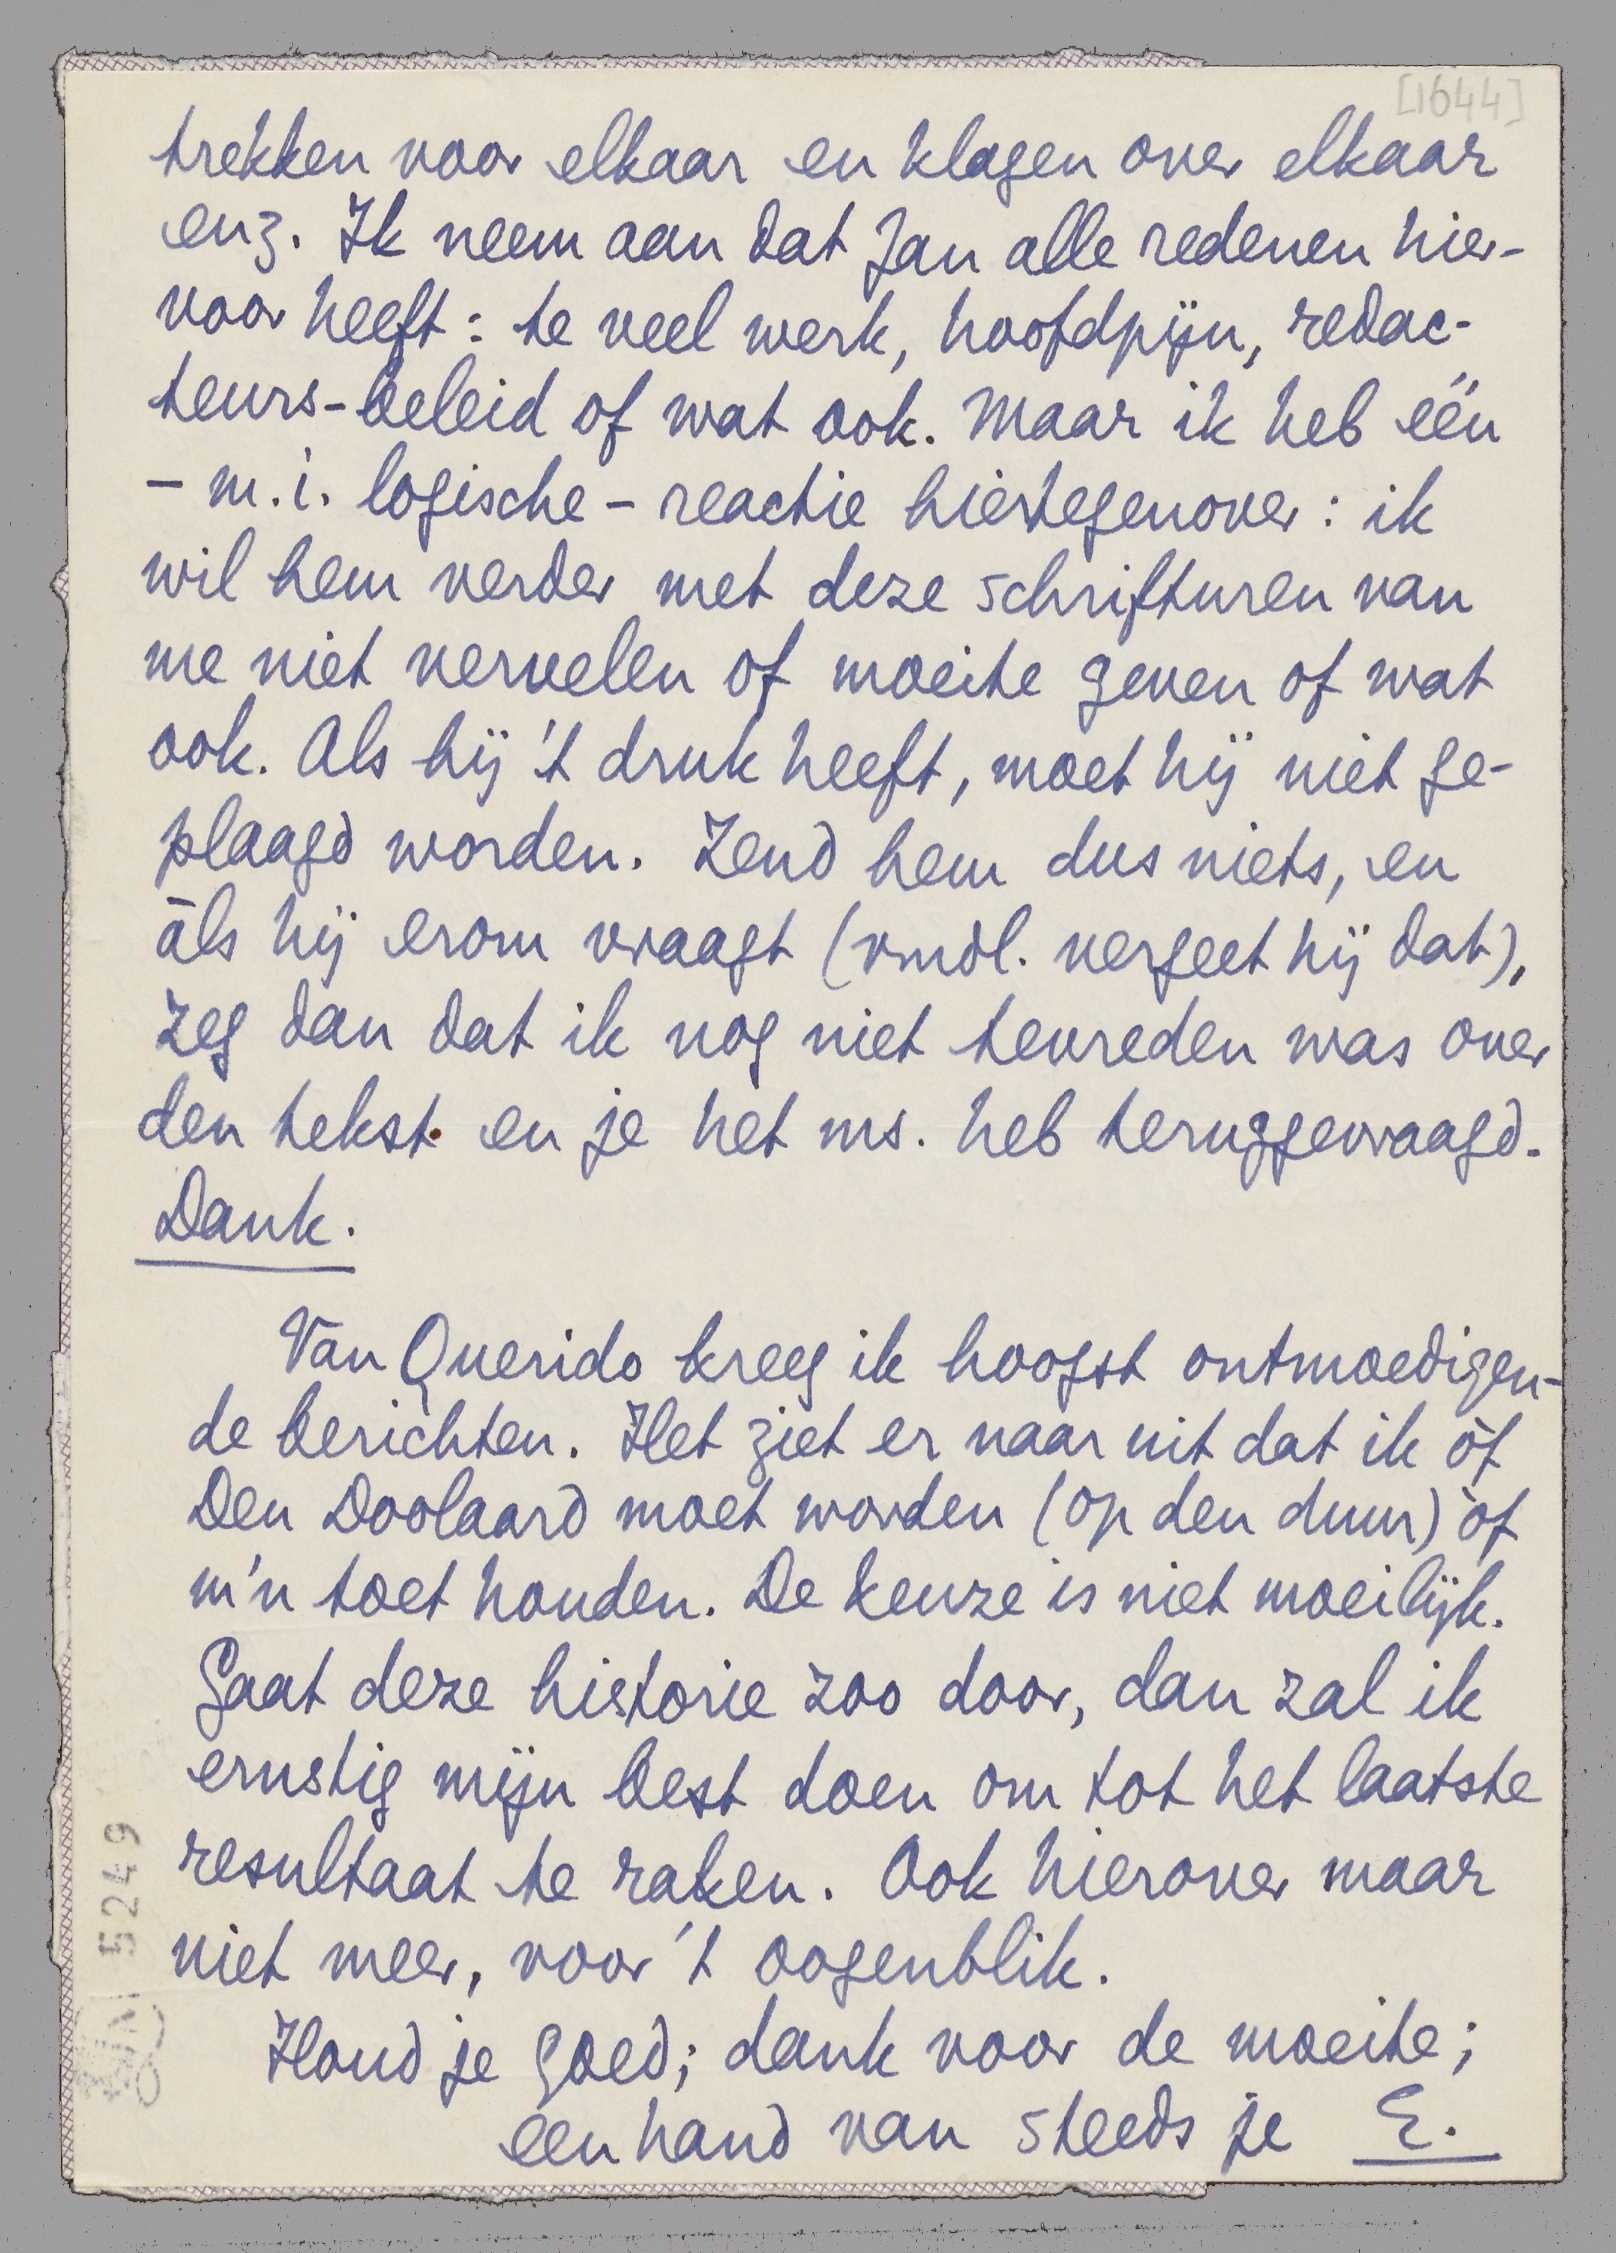 [1644]
trekken voor elkaar en klagen over elkaar
enz. Ik neem aan dat Jan alle redenen hier-
voor heeft: te veel werk, hoofdpijn, redac-
teurs-beleid of wat ook. Maar ik heb één
- m.i. logische - reactie hiertegenover: ik
wil hem verder met deze schrifturen van
me niet vervelen of moeite geven of wat
ook. Als hij 't druk heeft, moet hij niet ge-
plaagd worden. Zend hem dus niets, en
àls hij erom vraagt (vmdl. vergeet hij dat),
zeg dan dat ik nog niet tevreden was over
den tekst en je het ms. heb teruggevraagd.
Dank.
Van Querido kreeg ik hoogst ontmoedigen-
de berichten. Het ziet er naar uit dat ik òf
Den Doolaard moet worden (op den duur) òf
m'n toet houden. De keuze is niet moeilijk.
Gaat deze historie zoo door, dan zal ik
ernstig mijn best doen om tot het laatste
resultaat te raken. Ook hierover maar
niet meer, voor 't oogenblik.
Houd je goed; dank voor de moeite;
een hand van steeds je E.
5249